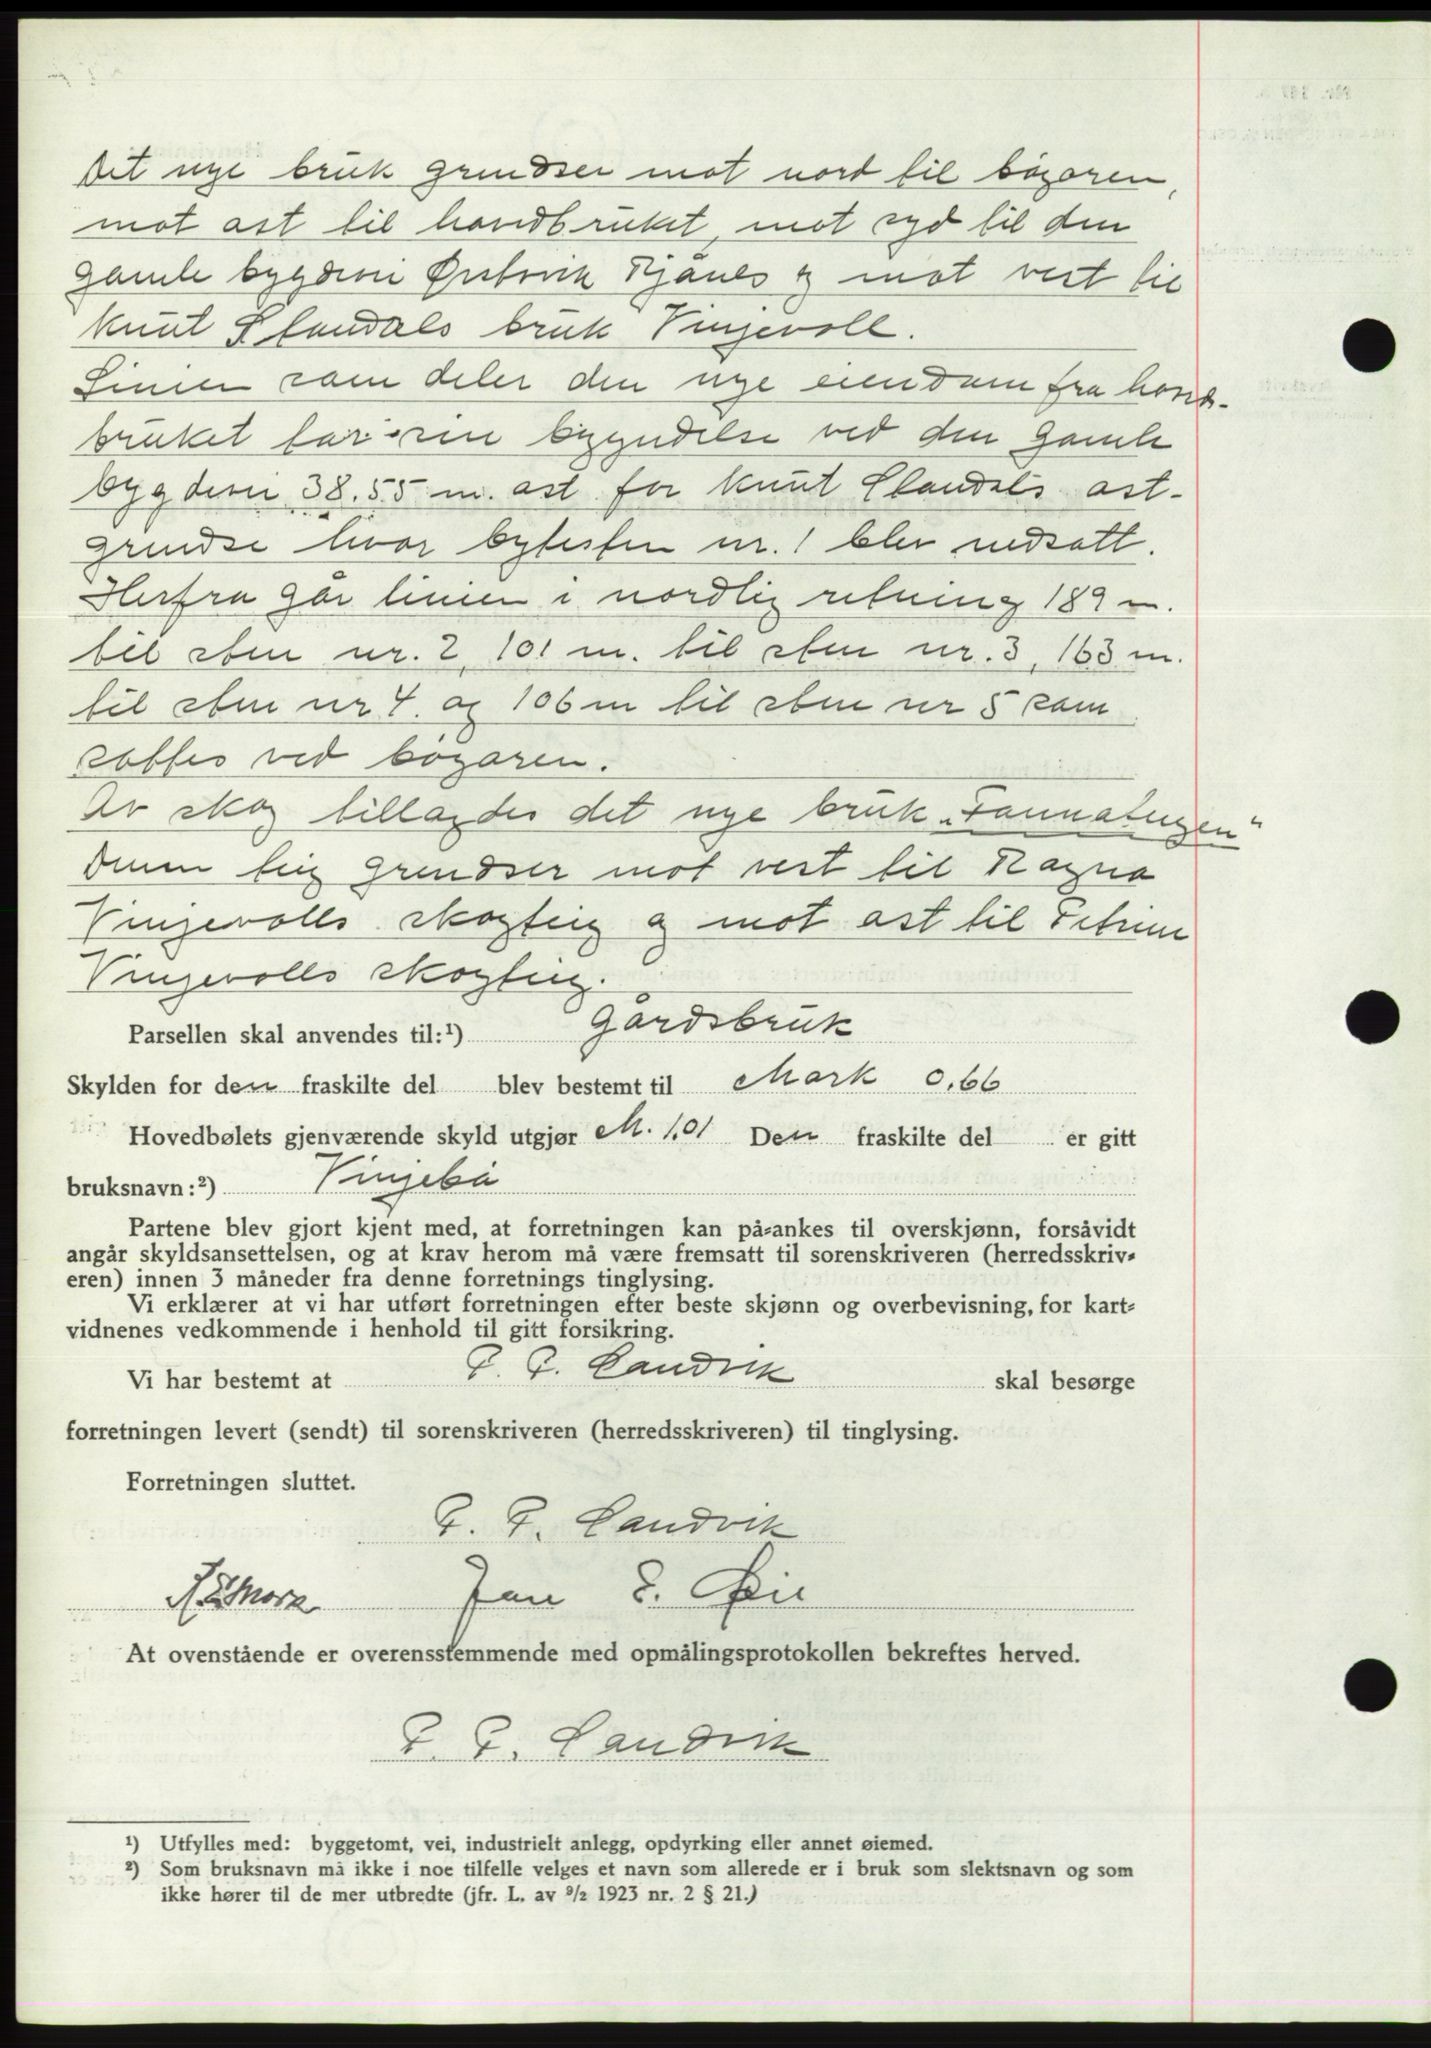 Det nye bruk grendser mot nord til bøgaren,
mot ast til hovedbruket, mot syd til den
gamle bygdevei Ørstavik Rjånes og mot vest til
Knut Standals bruk Vinjevoll.
Linien som deler den nye eiendom fra hoved-
bruket tar sin begyndelse ved den gamle
bygdevei 38.55 m. ast for Knut Standals ast-
grendse hvor bytesten nr. 1 blev nedsatt.
Herfra går linien i nordlig retning 189 m.
til sten nr. 2, 101 m. til sten nr. 3, 163 m.
til sten nr 4. og 106 m til sten nr 5 som
sattes ved bøgaren.
Av skog tillagdes det nye bruk „Tannateigen“
Denne teig grendser mot vest til Ragna
Vinjevolls skogteig og mot ast til Petrine
Vinjevolls skogteig.
Parsellen skal anvendes til:¹) Gårdsbruk
Skylden for den fraskilte del blev bestemt til Mark 0.66
Hovedbølets gjenværende skyld utgjør M. 1,01 Den fraskilte del er gitt
bruksnavn:²) Vinjebø
Partene blev gjort kjent med, at forretningen kan på-ankes til overskjønn, forsåvidt
angår skyldsansettelsen, og at krav herom må være fremsatt til sorenskriveren (herredsskriv-
eren) innen 3 måneder fra denne forretnings tinglysing.
Vi erklærer at vi har utført forretningen efter beste skjønn og overbevisning, for kart-
vidnenes vedkommende i henhold til gitt forsikring.
Vi har bestemt at P. P. Sandvik skal besørge
forretningen levert (sendt) til sorenskriveren (herredsskriveren) til tinglysing.
Forretningen sluttet.
P. P. Sandvik
Jon E. Øie
At ovenstående er overensstemmende med opmålingsprotokollen bekreftes herved.
P. P. Sandvik
¹) Utfylles med: byggetomt, vei, industrielt anlegg, opdyrking eller annet øiemed.
²) Som bruksnavn må ikke i noe tilfelle velges et navn som allerede er i bruk som slektsnavn og som
ikke hører til de mer utbredte (jfr. L. av 9/2 1923 nr. 2 § 21.)